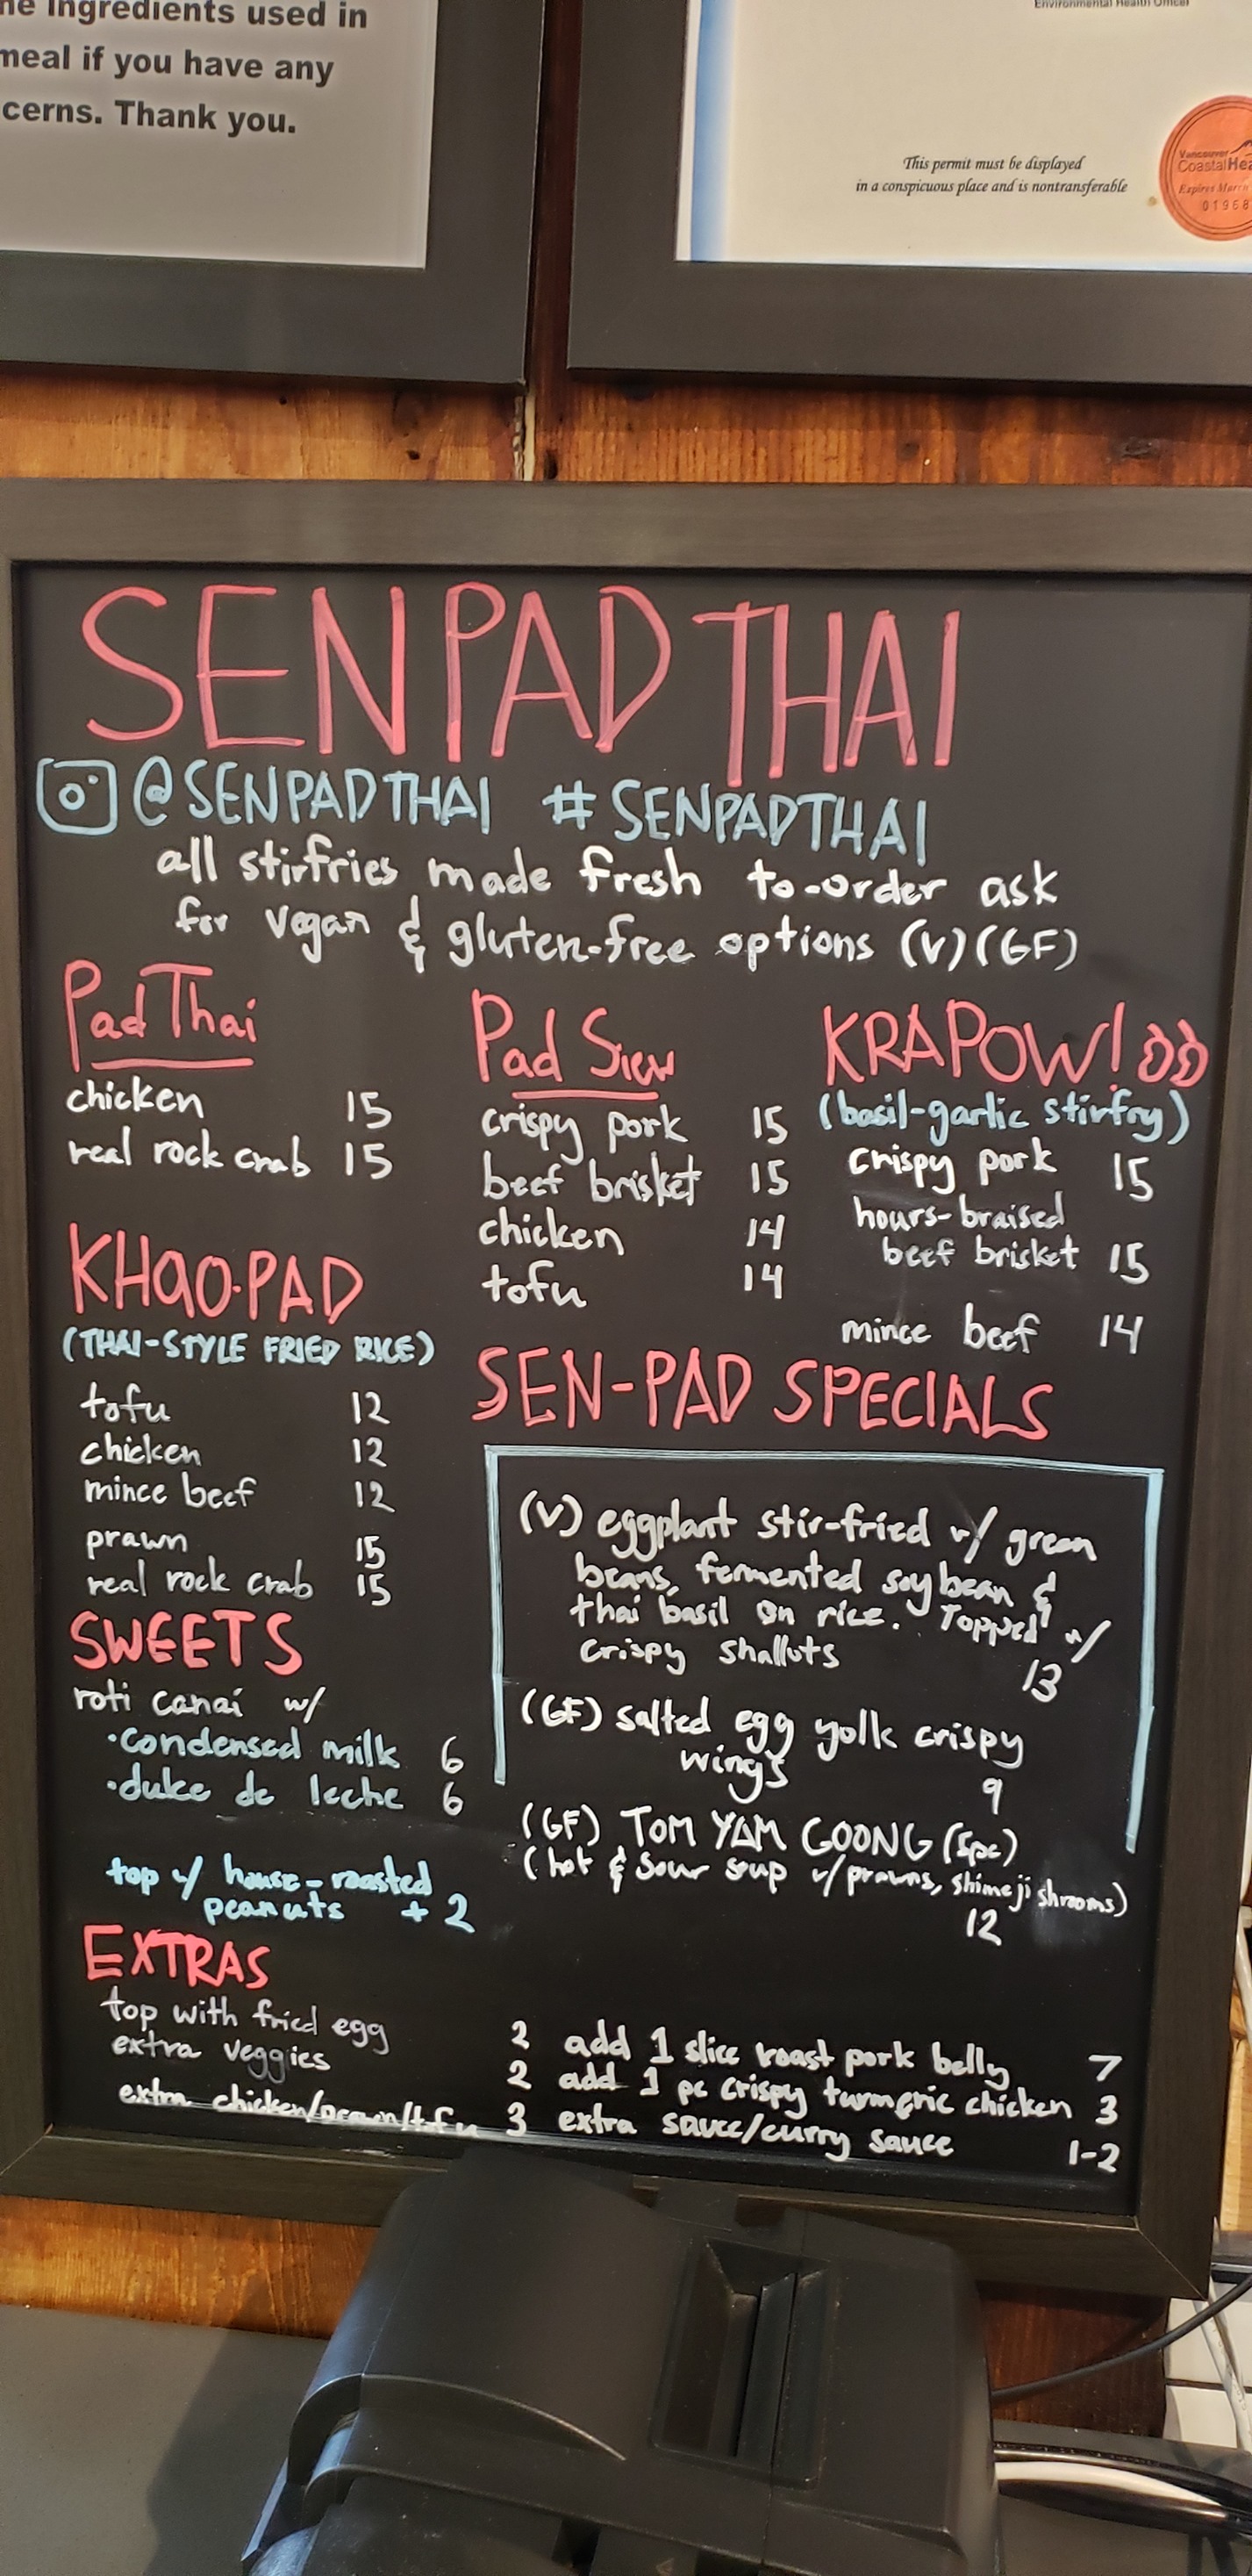 he ingredients used in
meal if you have any
cerns. Thank you.
Environmental Health Officer
This permit must be displayed
in a conspicuous place and is nontransferable
Vancouver
CoastalHea
Expires March
01968
SENPAD THAI
@SENPADTHAI #SENPADTHAI
all stirfries made fresh to-order ask
for vegan & gluten-free options (V)(GF)
Pad Thai
chicken 15
real rock crab 15
Pad Siew
crispy pork 15
beef brisket 15
chicken 14
tofu 14
KRAPOW!
(basil-garlic stirfry)
crispy pork 15
hours-braised
beef brisket 15
mince beef 14
KHAO-PAD
(THAI-STYLE FRIED RICE)
tofu 12
chicken 12
mince beef 12
prawn 15
real rock crab 15
SEN-PAD SPECIALS
(V) eggplant stir-fried w/ green
beans, fermented soybean &
thai basil on rice. Topped w/
crispy shallots
13
(GF) salted egg yolk crispy
wings
9
(GF) TOM YAM GOONG (5pc)
(hot & sour soup w/prawns, shimeji shrooms)
12
SWEETS
roti canai w/
•condensed milk 6
•dulce de leche 6
top w/ house-roasted
peanuts +2
EXTRAS
top with fried egg 2
extra veggies 2
extra chicken/prawn/tofu 3
add 1 slice roast pork belly 7
add 1 pc crispy turmeric chicken 3
extra sauce/curry sauce 1-2